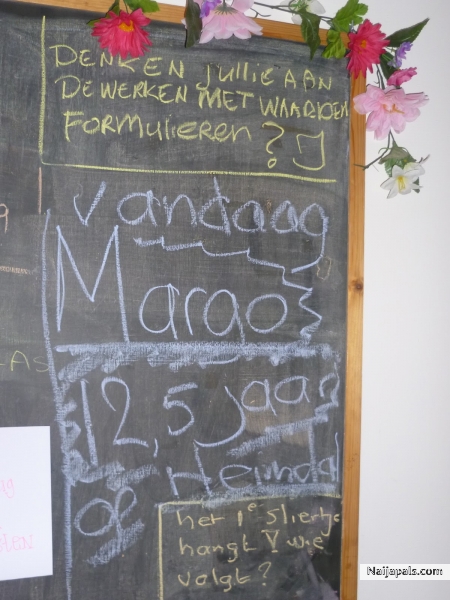 DENKEN jullie AAN
DE WERKEN MET WAARDEN
FORMULIEREN ? J
Vandaag
Margo
12,5 jaar
Heimdal
het 1e sliertje
hangt V wie
volgt?
Naijapals.com